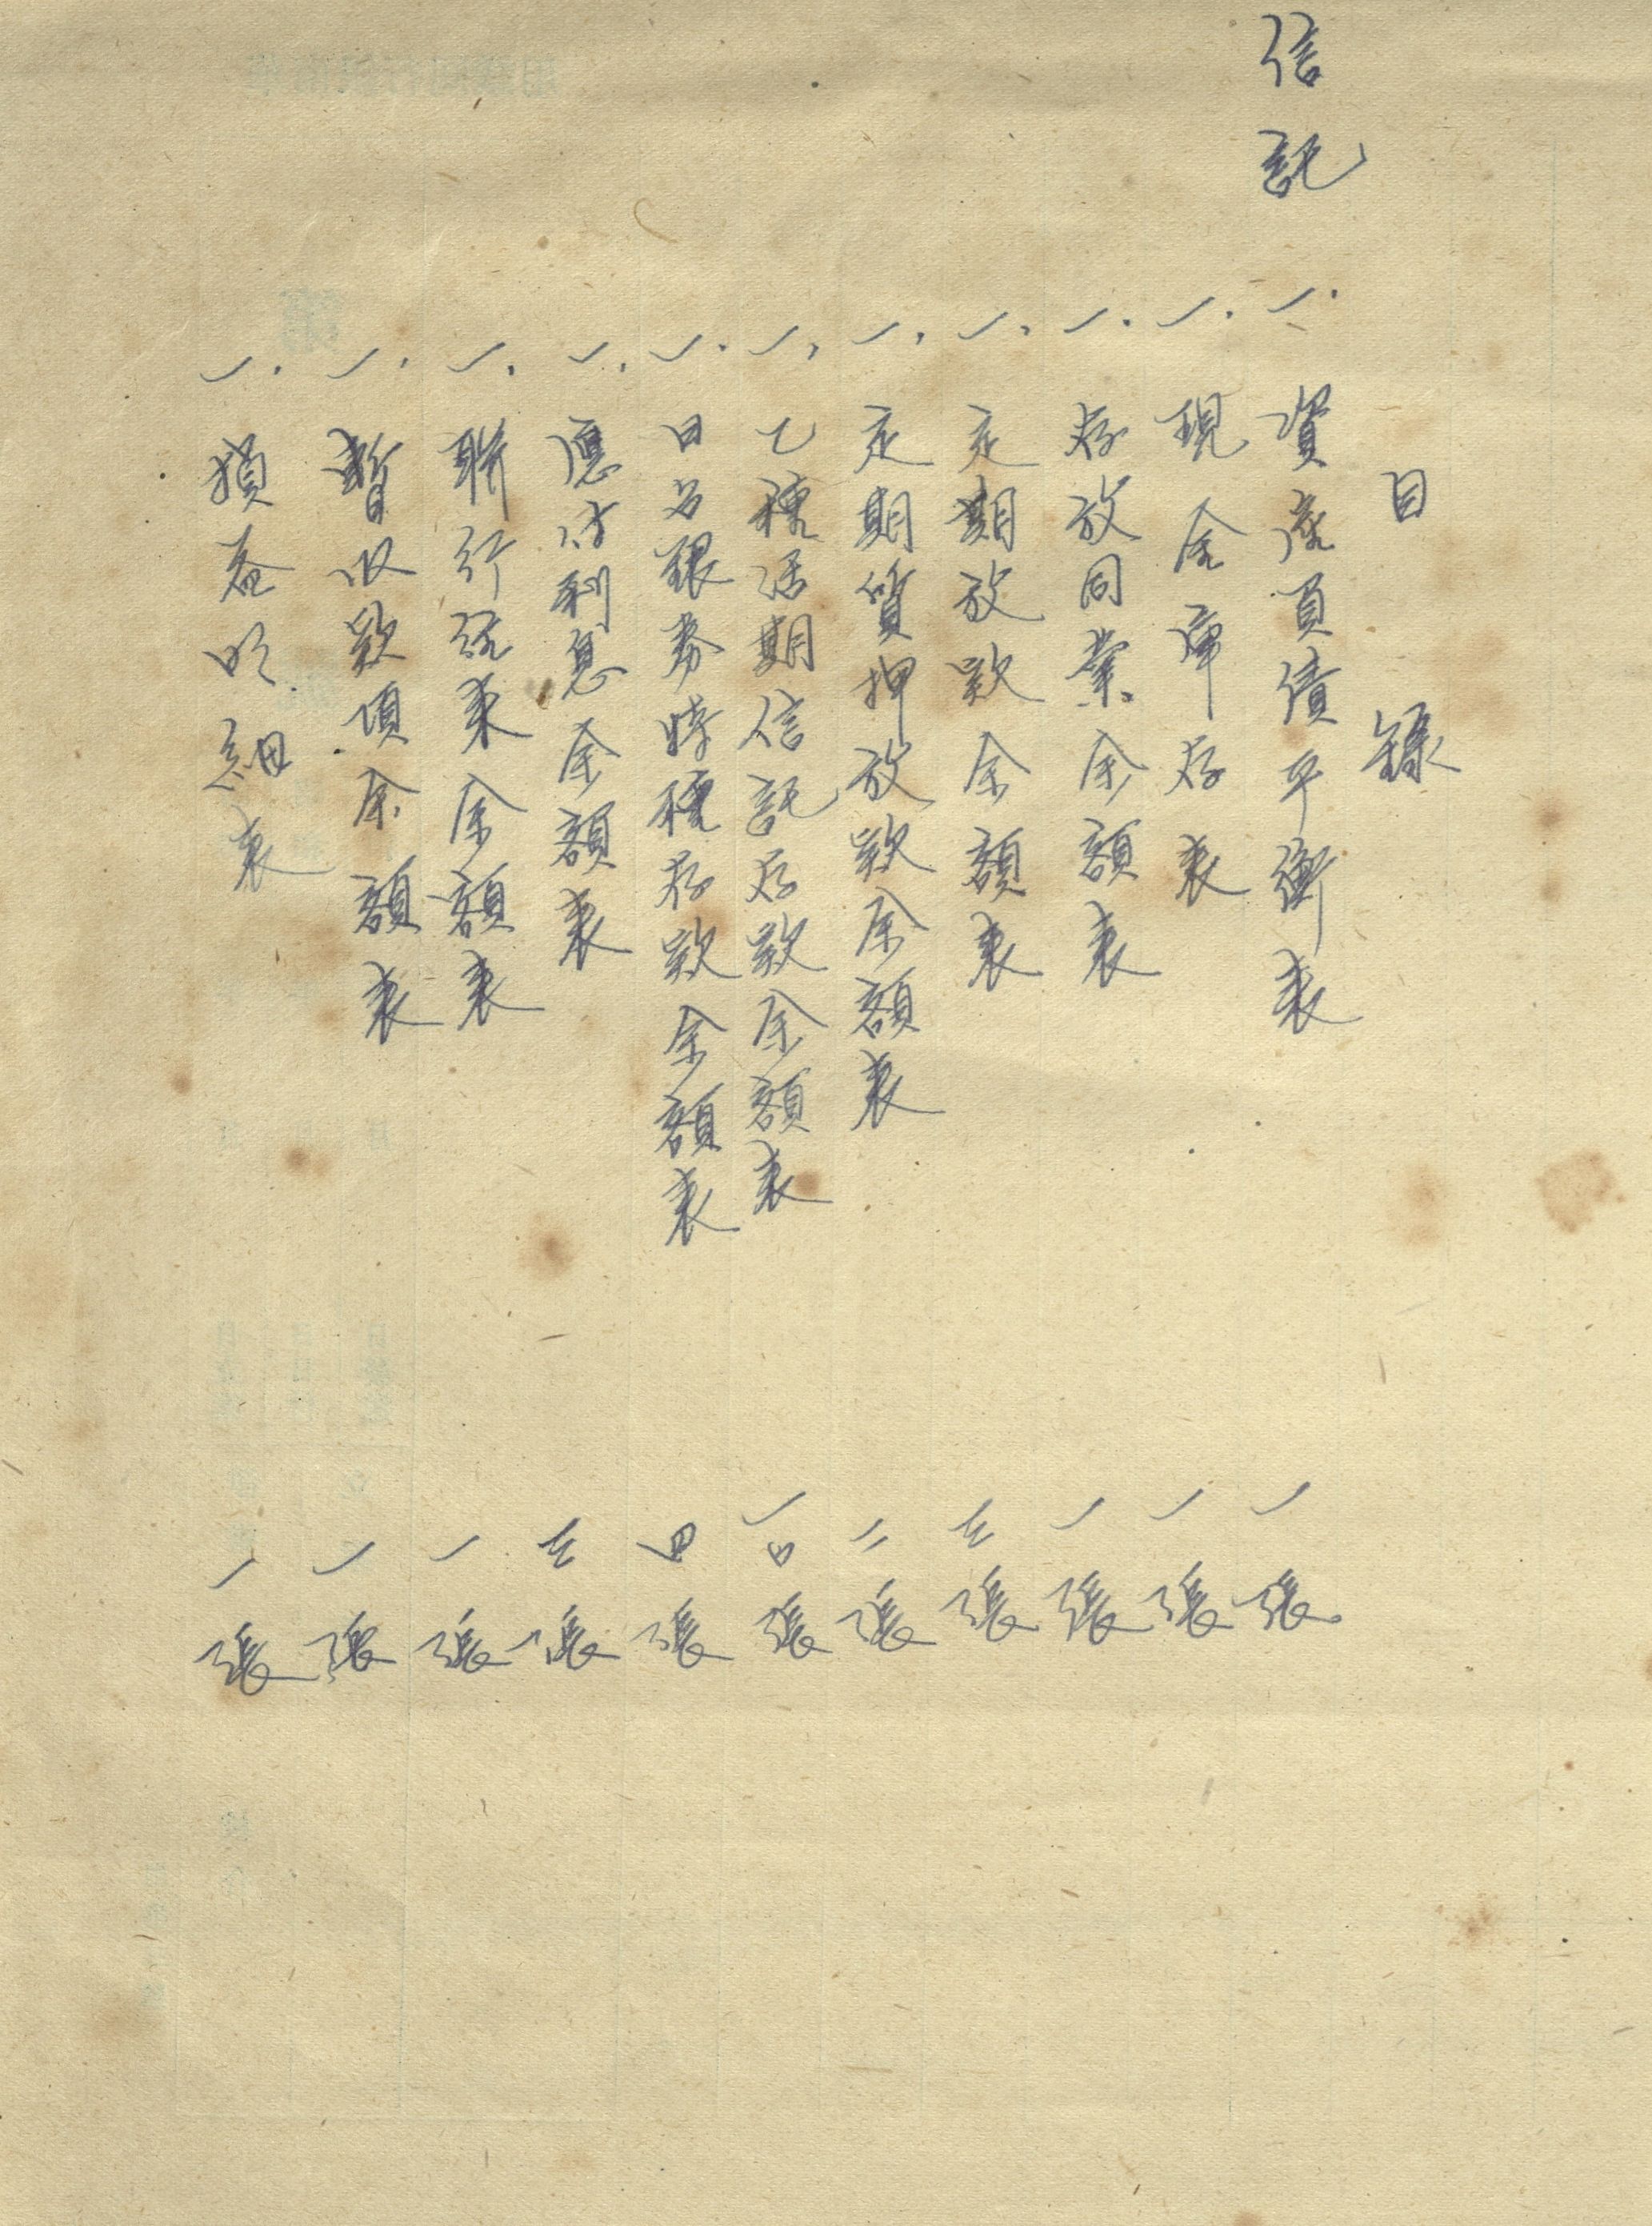 目錄
信託
一.資產負債平衡表 一張
一.現金庫存表 一張
一.存放同業余額表 一張
一.定期放款余額表 三張
一.定期質押放款余額表 二張
一.乙種活期信託存款余額表 張
一.日名銀券特種存款余額表 四張
一.應付利息余額表 三張
一.聯行往來余額表 一張
一.暫收款項余額表 一張
一.損益明細表 一張